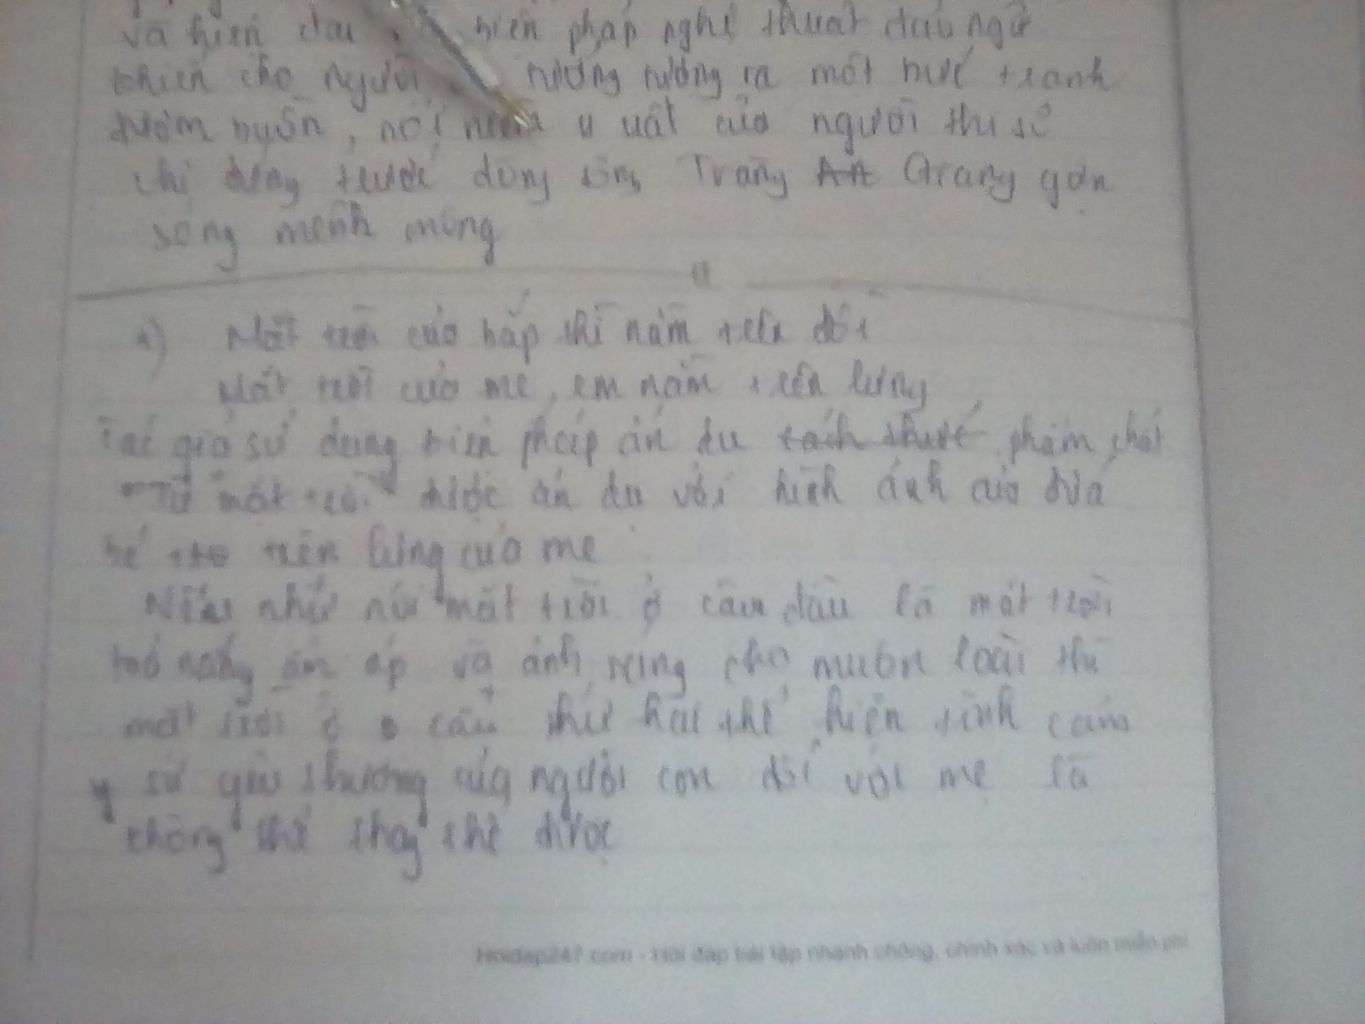 và hiện đại biện pháp nghệ thuật đảo ngữ
khiến cho người tượng ra một bức tranh
buồn, nỗi u uất của người thi sĩ
khi đứng trước dòng sông Tràng Giang gợn
sóng mênh mông
Mặt trời của bắp thì nằm trên đồi
Mặt trời của mẹ, em nằm trên lưng
Tác giả sử dụng biện pháp ẩn dụ phẩm chất
Từ "mặt trời" được ẩn dụ với hình ảnh của đứa
bé trên lưng của mẹ
Nếu như nói mặt trời ở câu đầu là mặt trời
toả nắng ấm áp và ánh sáng cho muôn loài thì
mặt trời ở câu thứ hai thể hiện tình cảm
sự yêu thương của người con đối với mẹ là
không thể thay thế được
Hoidap247.com - Hỏi đáp bài tập nhanh chóng, chính xác và luôn miễn phí